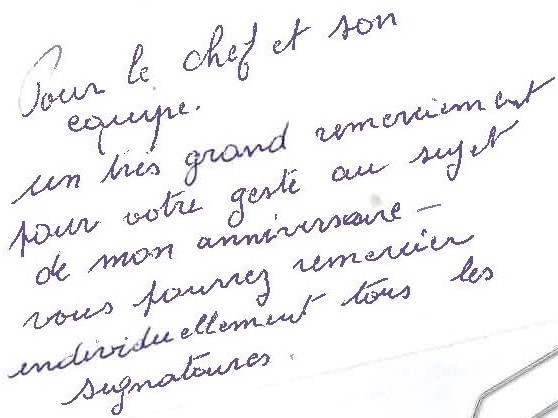 Pour le chef et son
equipe.
un très grand remerciement
pour votre geste au sujet
de mon anniversaire -
vous pourrez remercier
individuellement tous les
signatoures.